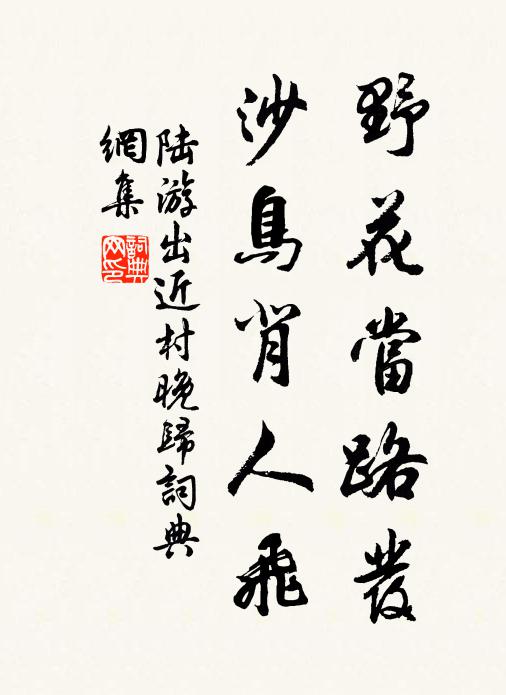 野花當路發
沙鳥背人飛
陆游出近村晚歸詞典
網集
詞典
网印